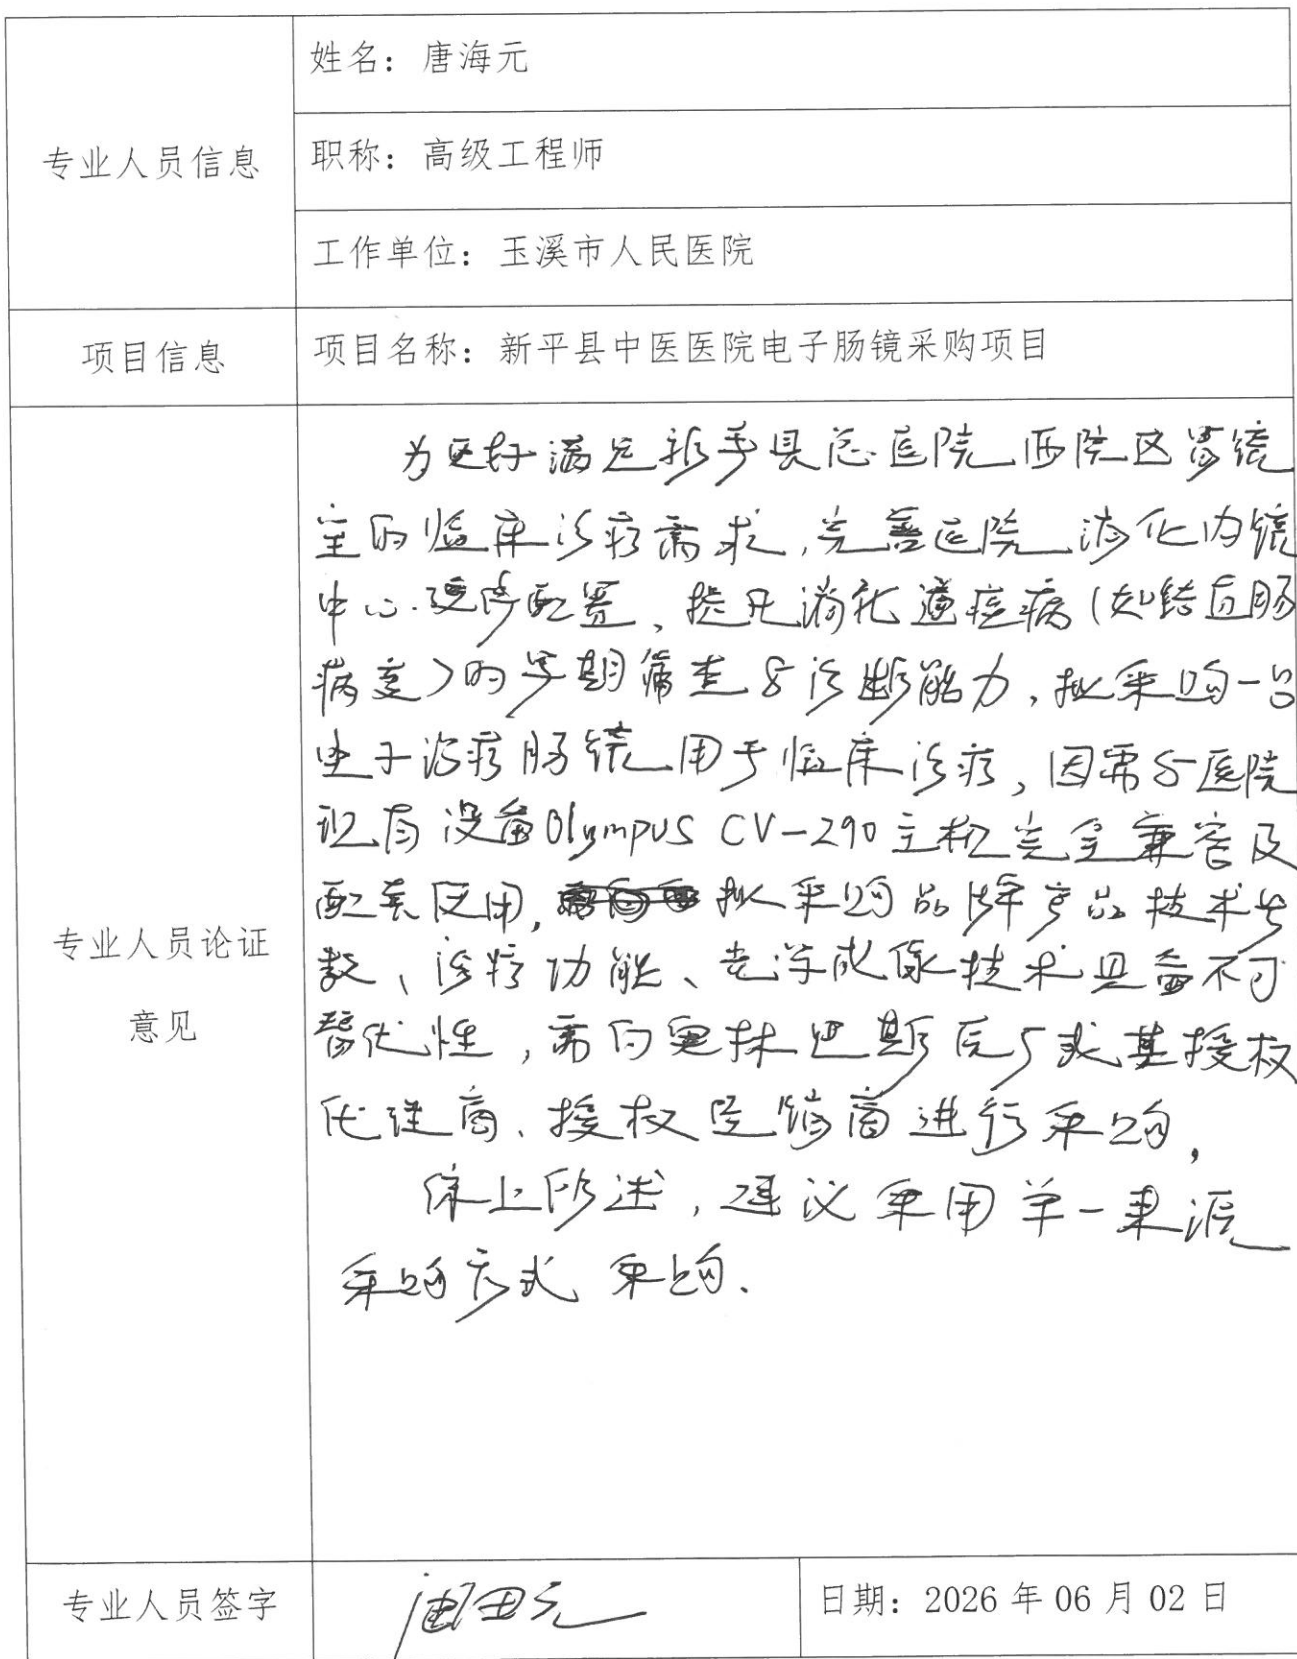 姓名：唐海元
专业人员信息
职称：高级工程师
工作单位：玉溪市人民医院
项目信息
项目名称：新平县中医医院电子肠镜采购项目
为更好满足新平县总医院西院区胃镜
室的临床诊疗需求,完善医院消化内镜
中心硬件配置、提升消化道疾病(如结直肠
病变)的早期筛查与诊断能力,拟采购一台
电子治疗肠镜用于临床诊疗,因需与医院
现有设备Olympus CV-290主机完全兼容及
配套使用,拟采购品牌产品技术参
数、诊疗功能、光学成像技术具备不可
替代性,需向奥林巴斯原厂或其授权
代理商、授权经销商进行采购,
综上所述,建议采用单一来源
采购方式采购.
专业人员论证
意见
专业人员签字
日期：2026年06月02日